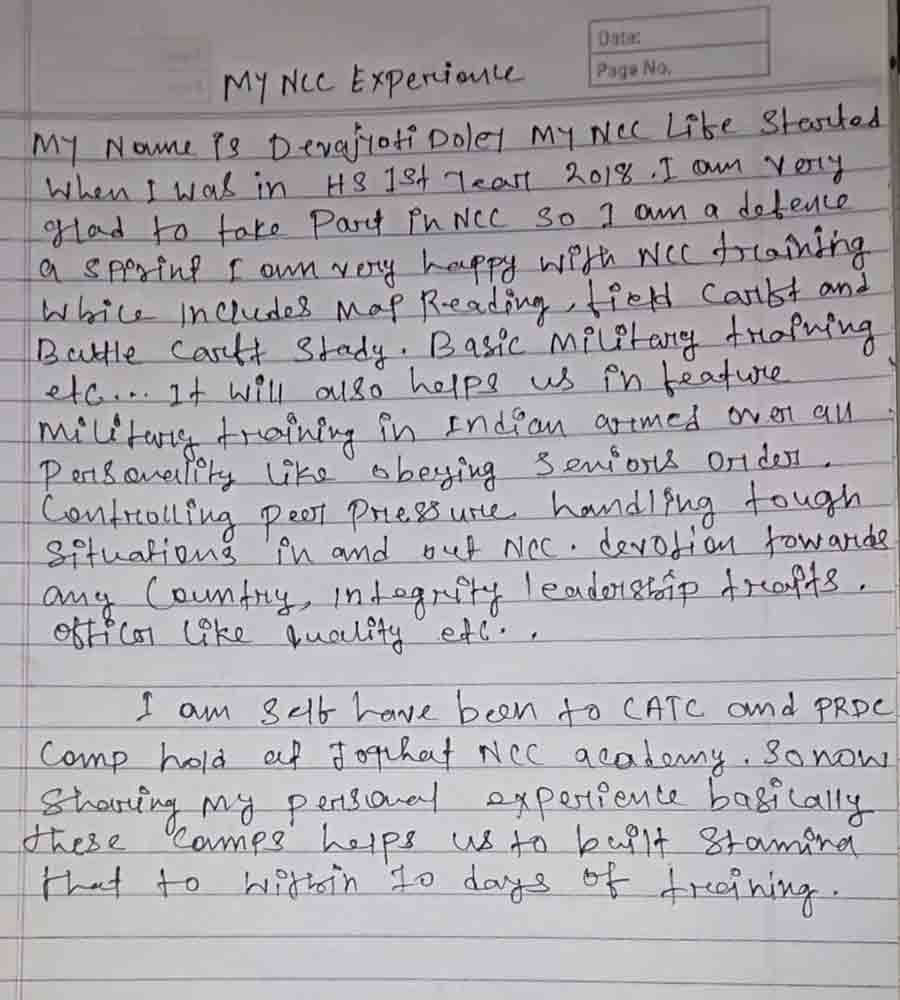 Date:
Page No.
My NCC Experiance
My Name is Devajyoti Doley My NCC Life Started
When I was in HS 1st Year 2018. I am very
glad to take Part in NCC so I am a defence
a spparint I am very happy with NCC training
Whice includes Map Reading, field Carft and
Battle Carft Stady. Basic Military training
etc... It will also helps us in feature
Military training in Indian armed over all
Personality like obeying seniors order.
Controlling peer Pressure handling tough
Situations in and out NCC. devotion towards
any Country, integrity leadership traits.
officer like quality etc..
I am self have been to CATC and PRDC
Camp hold at Jorhat NCC academy. So now
Sharing My personal experience basically
these camps helps us to built Stamina
that to within 10 days of training.